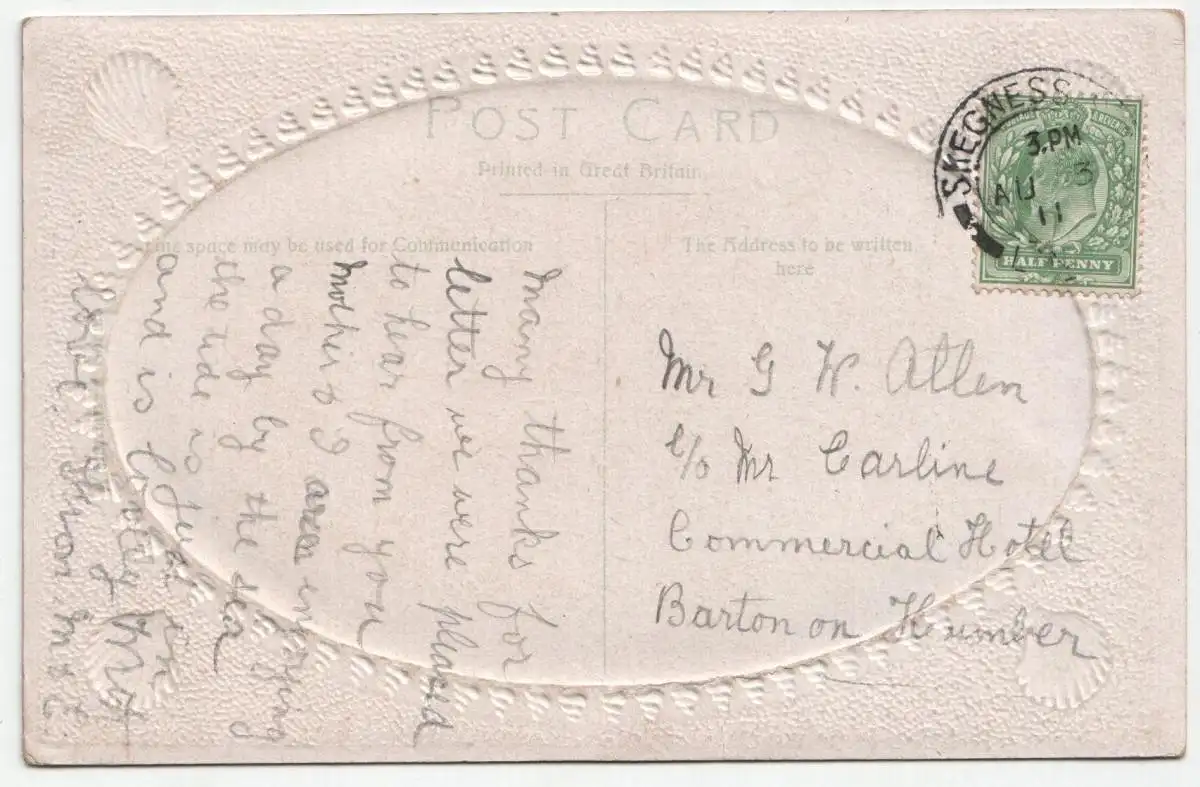 POST CARD
Printed in Great Britain
space may be used for Communication
The Address to be written
here
SKEGNESS
3.PM
AU 3
11
HALF PENNY
Many thanks for
letter we were pleased
to hear from you
Mother & I are enjoying
a day by the sea
the tide is just in
and is lovely &
Love
Mr G W. Allen
c/o Mr Carline
Commercial Hotel
Barton on Humber